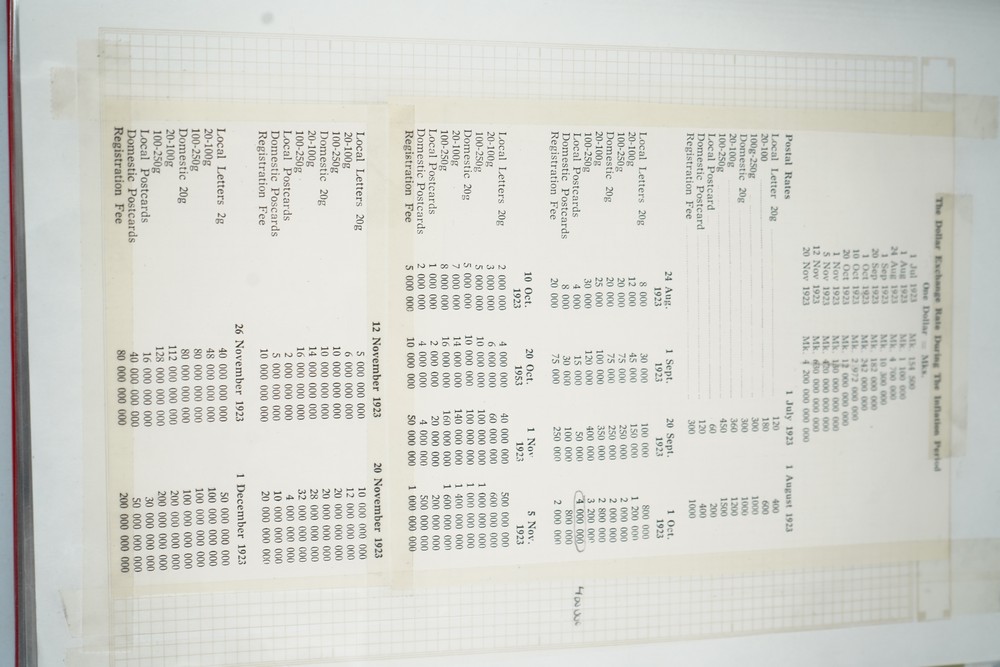 The Dollar Exchange Rate During The Inflation Period
One Dollar = Mks.
1 Jul 1923 Mk 154 500
1 Aug 1923 Mk 1 100 000
24 Aug 1923 Mk. 4 700 000
1 Sep 1923 Mk 10 300 000
20 Sep 1923 Mk 182 000 000
1 Oct 1923 Mk 242 000 000
10 Oct 1923 Mk 2,972 000 000
20 Oct 1923 Mk 12 000 000 000
1 Nov 1923 Mk 130 000 000 000
5 Nov 1923 Mk. 420 000 000 000
12 Nov 1923 Mk 630 000 000 000
20 Nov 1923 Mk. 4 200 000 000 000
Postal Rates 1 July 1923 1 August 1923
Local Letter 20g 120 400
20-100 180 600
100g-250g 300 1000
Domestic 20g 300 1000
20-100g 360 1200
100-250g 450 1500
Local Postcard 60 200
Domestic Postcard 120 400
Registration Fee 300 1000
24 Aug. 1 Sept. 20 Sept. 1 Oct.
1923 1923 1923 1923
Local Letters 20g 8 000 30 000 100 000 800 000
20-100g 12 000 45 000 150 000 1 200 000
100-250g 20 000 75 000 250 000 2 000 000
Domestic 20g 20 000 75 000 250 000 2 000 000
20-100g 25 000 100 000 350 000 2 800 000
100-250g 30 000 120 000 400 000 3 200 000
Local Postcards 4 000 15 000 50 000 4 000 000
Domestic Postcards 8 000 30 000 100 000 800 000
Registration Fee 20 000 75 000 250 000 2 000 000
10 Oct. 20 Oct. 1 Nov. 5 Nov.
1923 1953 1923 1923
Local Letters 20g 2 000 000 4 000 000 40 000 000 500 000 000
20-100g 3 000 000 6 000 000 60 000 000 600 000 000
100-250g 5 000 000 10 000 000 100 000 000 1 000 000 000
Domestic 20g 5 000 000 10 000 000 100 000 000 1 000 000 000
20-100g 7 000 000 14 000 000 140 000 000 1 400 000 000
100-250g 8 000 000 16 000 000 160 000 000 1 600 000 000
Local Postcards 1 000 000 2 000 000 20 000 000 200 000 000
Domestic Postcards 2 000 000 4 000 000 4 000 000 500 000 000
Registration Fee 5 000 000 10 000 000 50 000 000 1 000 000 000
12 November 1923 20 November 1923
Local Letters 20g 5 000 000 000 10 000 000 000
20-100g 6 000 000 000 12 000 000 000
100-250g 10 000 000 000 20 000 000 000
Domestic 20g 10 000 000 000 20 000 000 000
20-100g 14 000 000 000 28 000 000 000
100-250g 16 000 000 000 32 000 000 000
Local Postcards 2 000 000 000 4 000 000 000
Domestic Poscards 5 000 000 000 10 000 000 000
Registration Fee 10 000 000 000 20 000 000 000
26 November 1923 1 December 1923
Local Letters 2g 40 000 000 000 50 000 000 000
20-100g 48 000 000 000 100 000 000 000
100-250g 80 000 000 000 100 000 000 000
Domestic 20g 80 000 000 000 100 000 000 000
20-100g 112 000 000 000 200 000 000 000
100-250g 128 000 000 000 200 000 000 000
Local Postcards 16 000 000 000 30 000 000 000
Domestic Postcards 40 000 000 000 50 000 000 000
Registration Fee 80 000 000 000 200 000 000 000